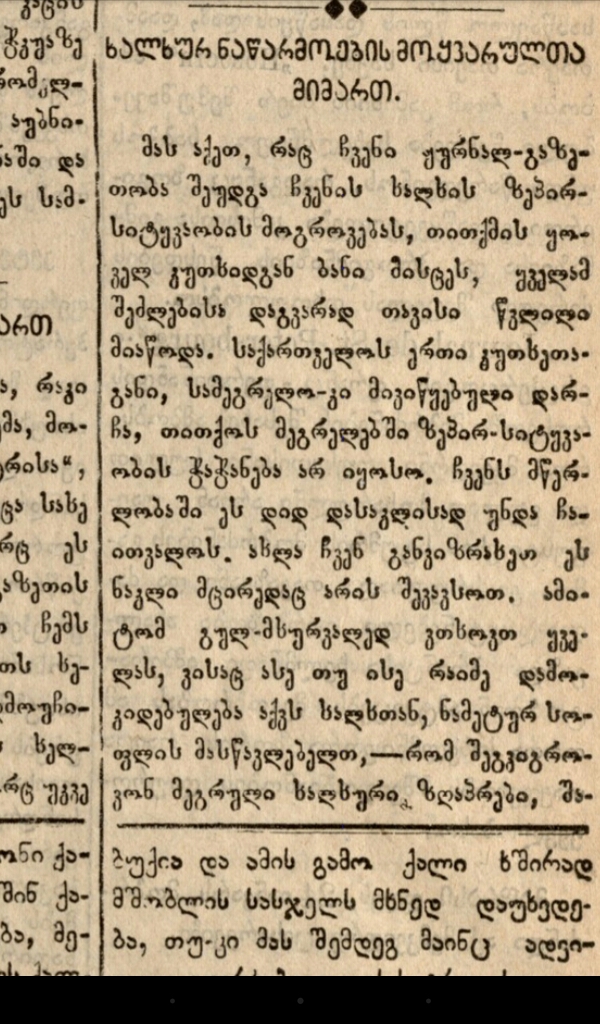 კაცის
ჭკუაზე
რომელ-
აუბნი-
აში და
ეს სამ-
ართ
ა, რაკი
მა, მო-
რისა“,
ცა სახე
რც ეს
აზეთის
ჩემს
თს ხე-
მოუჩი-
ხელ-
რც უკვე
ონი ქა-
შინ ქა-
ბა, მე-
ხალხურ ნაწარმოების მოყვარულთა
მიმართ.
მას აქეთ, რაც ჩვენი ჟურნალ-გაზე-
თობა შეუდგა ჩვენის ხალხის ზეპირ-
სიტყვაობის მოგროვებას, თითქმის ყო-
ველ კუთხიდგან ბანი მისცეს, ყველამ
შეძლებისა დაგვარად თავისი წვლილი
მიაწოდა. საქართველოს ერთი კუთხეთა-
განი, სამეგრელო-კი მივიწყებული დარ-
ჩა, თითქოს მეგრელებში ზეპირ-სიტყვა-
ობის ჭაჭანება არ იყოსო. ჩვენს მწერ-
ლობაში ეს დიდ დასაკლისად უნდა ჩა-
ითვალოს. ახლა ჩვენ განვიზრახეთ ეს
ნაკლი მცირედაც არის შევავსოთ. ამი-
ტომ გულ-მხურვალედ ვთხოვთ ყვე-
ლას, ვისაც ასე თუ ისე რაიმე დამო-
კიდებულება აქვს ხალხთან, ნამეტურ სო-
ფლის მასწავლებელთ,—რომ შეგვიგრო-
ვონ მეგრული ხალხური ზღაპრები, შა-
ბუქია და ამის გამო ქალი ხშირად
მშობლის სასჯელს მხნედ დაუხვდე-
ბა, თუ-კი მას შემდეგ მაინც ადვი-